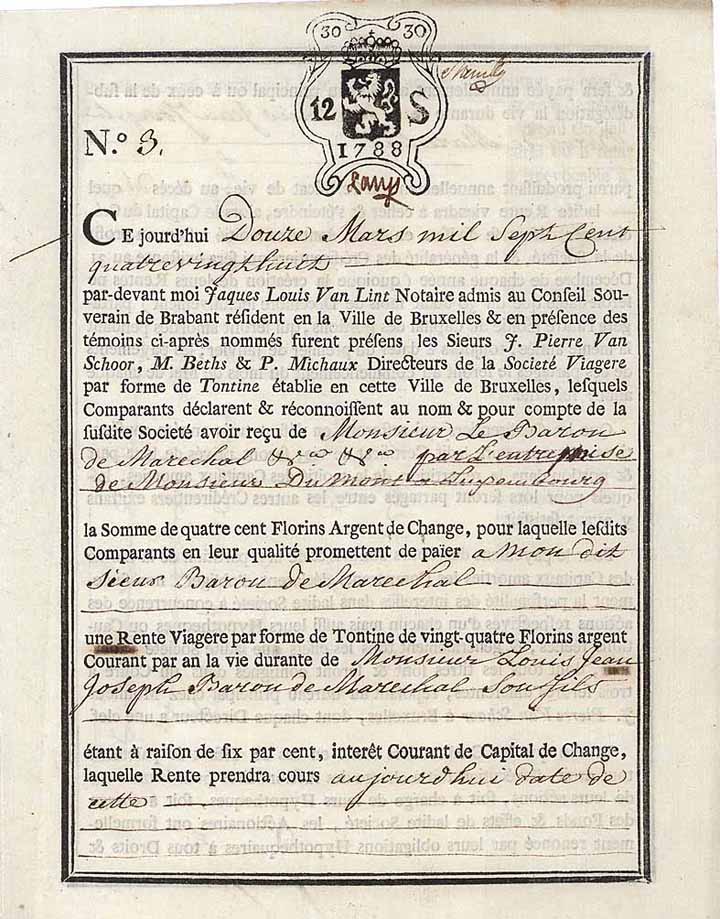 30 30
12 S
1788
N.º 3.
CE jourd'hui Douze Mars mil Sept Cent
quatrevingthuit
par-devant moi Jaques Louis Van Lint Notaire admis au Conſeil Sou-
verain de Brabant réſident en la Ville de Bruxelles & en préſence des
témoins ci-après nommés furent préſens les Sieurs J. Pierre Van
Schoor, M. Beths & P. Michaux Directeurs de la Societé Viagere
par forme de Tontine établie en cette Ville de Bruxelles, leſquels
Comparants déclarent & réconnoiſſent au nom & pour compte de la
ſuſdite Societé avoir reçu de Monsieur Le Baron
de Marechal &ca &ca par L'entremise
de Monsieur Du Mont a Luxembourg
la Somme de quatre cent Florins Argent de Change, pour laquelle leſdits
Comparants en leur qualité promettent de païer a mon dit
Sieur Baron de Marechal
une Rente Viagere par forme de Tontine de vingt-quatre Florins argent
Courant par an la vie durante de Monsieur Louis Jean
Joseph Baron de Marechal Son fils
étant à raiſon de ſix par cent, interêt Courant de Capital de Change,
laquelle Rente prendra cours aujourd'hui date de
cette